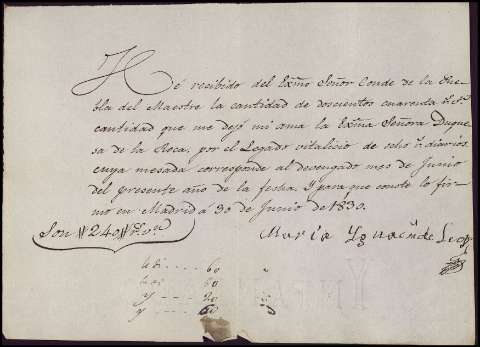 Hé recibido del Exmo Señor Conde de la Pue-
bla del Maestre la cantidad de doscientos cuarenta r.s v.n
cantidad que me dejó mi ama la Exma Señora Duque-
sa de la Roca, por el Legado vitalicio de ocho r.s diarios,
cuya mesada corresponde al devengado mes de Junio
del presente año de la fecha. Y para que conste lo fir-
mo en Madrid a 30 de Junio de 1830.
Son 240 r.s v.n
Maria Ygnacia de
60
60
y 20
y